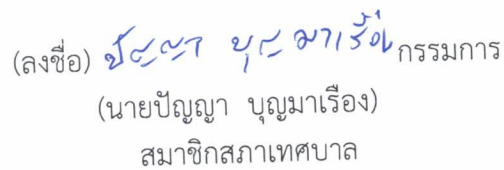 (ลงชื่อ) ปัญญา บุญมาเรือง กรรมการ
(นายปัญญา บุญมาเรือง)
สมาชิกสภาเทศบาล